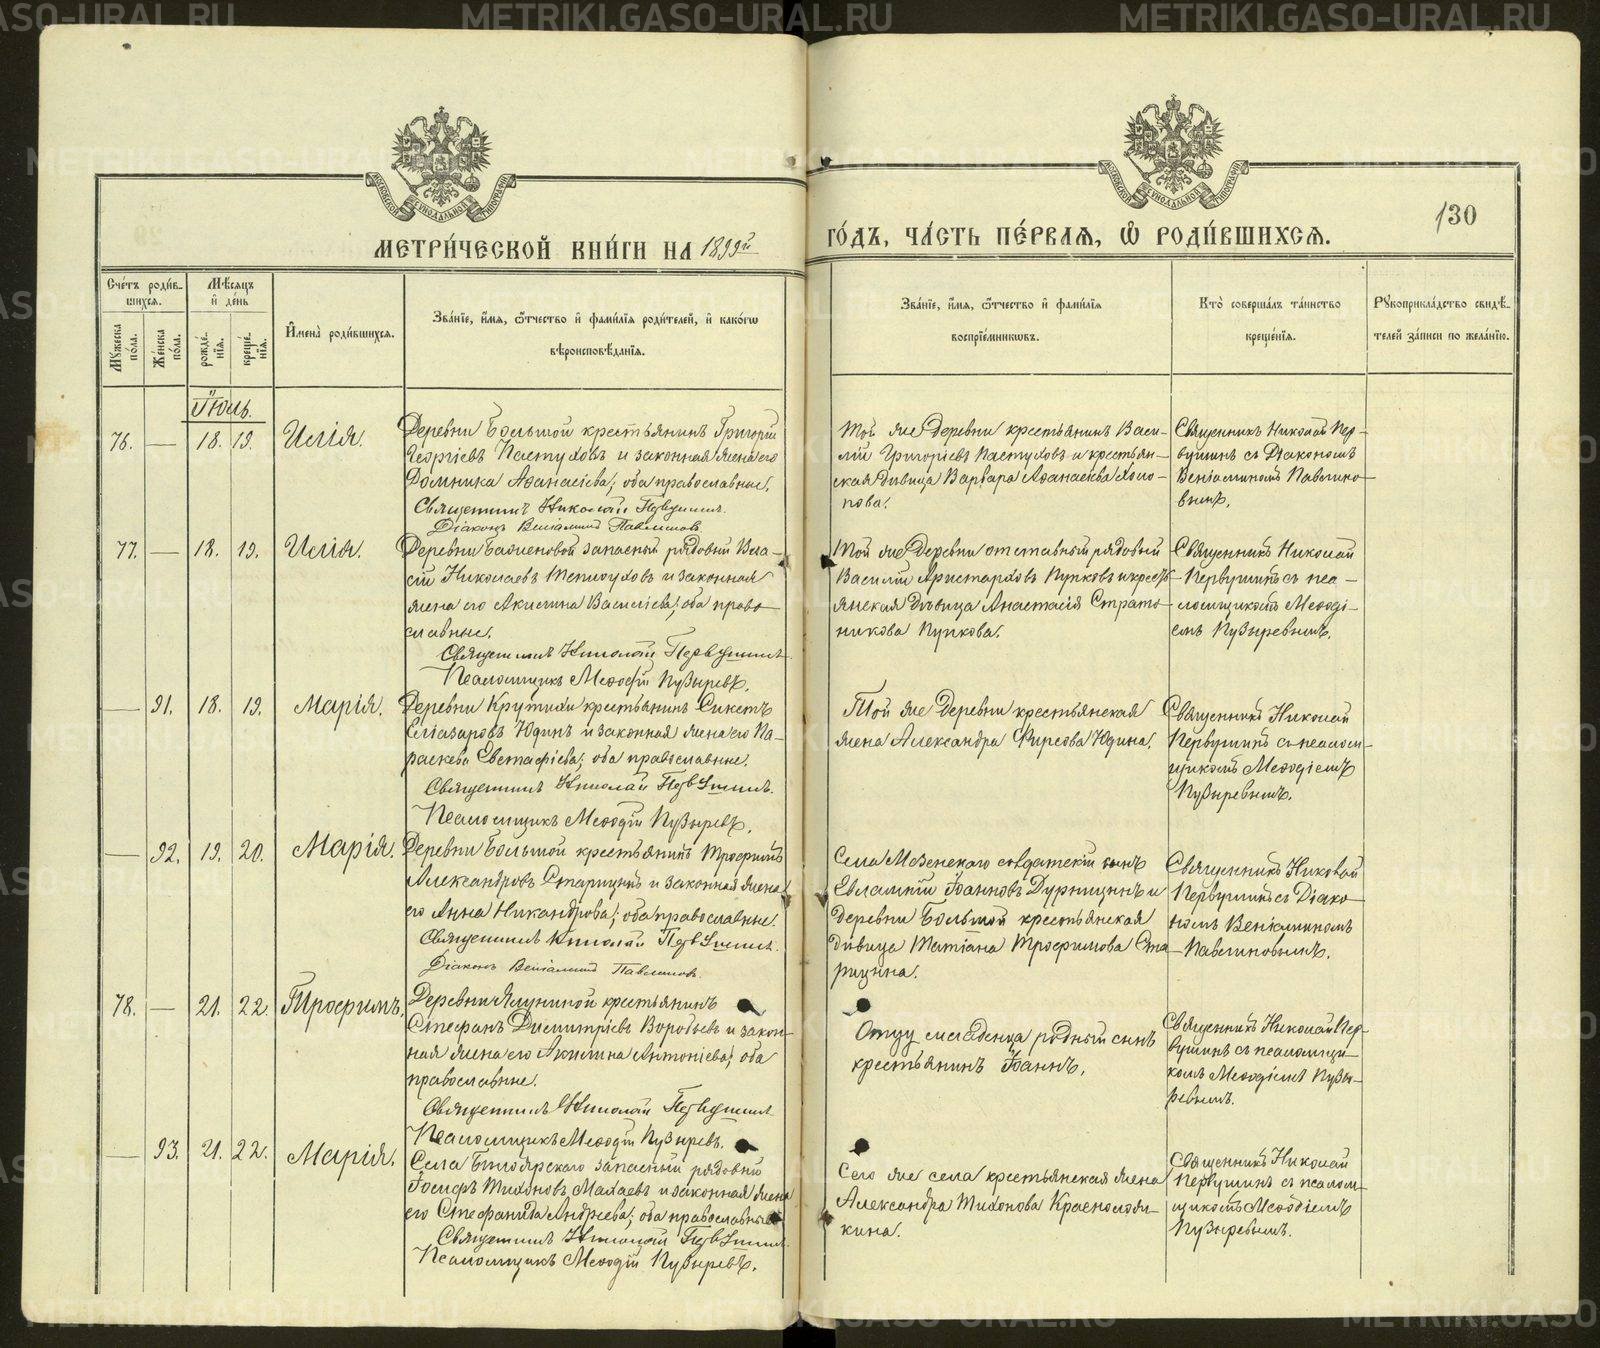 METRIKI.GASO-URAL.RU
130
МЕТРИ́ЧЕСКОЙ КНИ́ГИ НА 1899й
ГО́ДЪ, ЧА́СТЬ ПЕ́РВАЯ, Ѡ҆ РОДИ́ВШИХСЯ.
Сче́тъ роди́в-
шихся.
Мѣ́сяцъ
и҆ де́нь
Му́жеска по́ла.
Же́нска по́ла.
рожде́-
нїя.
креще́-
нїя.
И҆мена̀ роди́вшихся.
Зва́нїе, и҆́мя, ѻ҆́тчество и҆ фами́лїя роди́телей, и҆ како́гѡ
вѣроисповѣ́данїя.
Зва́нїе, и҆́мя, ѻ҆́тчество и҆ фами́лїя
воспрїе́мникѡвъ.
Кто̀ соверша́лъ та́инство
креще́нїя.
Рꙋкоприкла́дство свидѣ́-
телей за́писи по жела́нїю.
Іюль.
76. — 18. 19. Илія.
Деревни Большой крестьянинъ Григорій
Георгіевъ Пастуховъ и законная жена его
Домника Аѳанасіева; оба православные.
Священникъ Николай Первушинъ.
Діаконъ Веніаминъ Павлиновъ.
Той же деревни крестьянинъ Васи-
лій Григоріевъ Пастуховъ и крестьян-
ская дѣвица Варвара Аѳанасіева Холо-
пова.
Священникъ Николай Пер-
вушинъ съ Діакономъ
Веніаминомъ Павлино-
вымъ.
77. — 18. 19. Илія.
Деревни Баженовой запасный рядовый Ва-
сій Николаевъ Теплоуховъ и законная
жена его Акилина Василіева; оба право-
славные.
Священникъ Николай Первушинъ.
Псаломщикъ Меѳодій Пузыревъ.
Той же деревни отставный рядовый
Василій Аристарховъ Пупковъ и кресть-
янская дѣвица Анастасія Страто-
никова Пупкова.
Священникъ Николай
Первушинъ съ пса-
ломщикомъ Меѳоді-
емъ Пузыревымъ.
— 91. 18. 19. Марія.
Деревни Крутихи крестьянинъ Сикстъ
Еліазаровъ Юдинъ и законная жена его Па-
раскева Евстафіева; оба православные.
Священникъ Николай Первушинъ.
Псаломщикъ Меѳодій Пузыревъ.
Той же деревни крестьянская
жена Александра Фирсова Юдина.
Священникъ Николай
Первушинъ съ псалом-
щикомъ Меѳодіемъ
Пузыревымъ.
— 92. 19. 20. Марія.
Деревни Большой крестьянинъ Трофимъ
Александровъ Старицинъ и законная жена
его Анна Никандрова; оба православные.
Священникъ Николай Первушинъ.
Діаконъ Веніаминъ Павлиновъ.
Села солдатскій сынъ
Евлампій Іоанновъ Дурницынъ и
деревни Большой крестьянская
дѣвица Татіана Трофимова Ста-
рицина.
Священникъ Николай
Первушинъ съ Діако-
номъ Веніаминомъ
Павлиновымъ.
78. — 21. 22. Трофимъ.
Деревни Ялуниной крестьянинъ
Стефанъ Димитріевъ Воробьевъ и закон-
ная жена его Акилина Антоніева; оба
православные.
Священникъ Николай Первушинъ.
Псаломщикъ Меѳодій Пузыревъ.
Отцу младенца родный сынъ
крестьянинъ Іоаннъ.
Священникъ Николай Пер-
вушинъ съ псаломщи-
комъ Меѳодіемъ Пузы-
ревымъ.
— 93. 21. 22. Марія.
Села Белоярскаго запасный рядовый
Іосифъ Тихоновъ Махаевъ и законная жена
его Стефанида Андреева; оба православные.
Священникъ Николай Первушинъ.
Псаломщикъ Меѳодій Пузыревъ.
Сего же села крестьянская жена
Александра Тихонова
кина.
Священникъ Николай
Первушинъ съ псалом-
щикомъ Меѳодіемъ
Пузыревымъ.